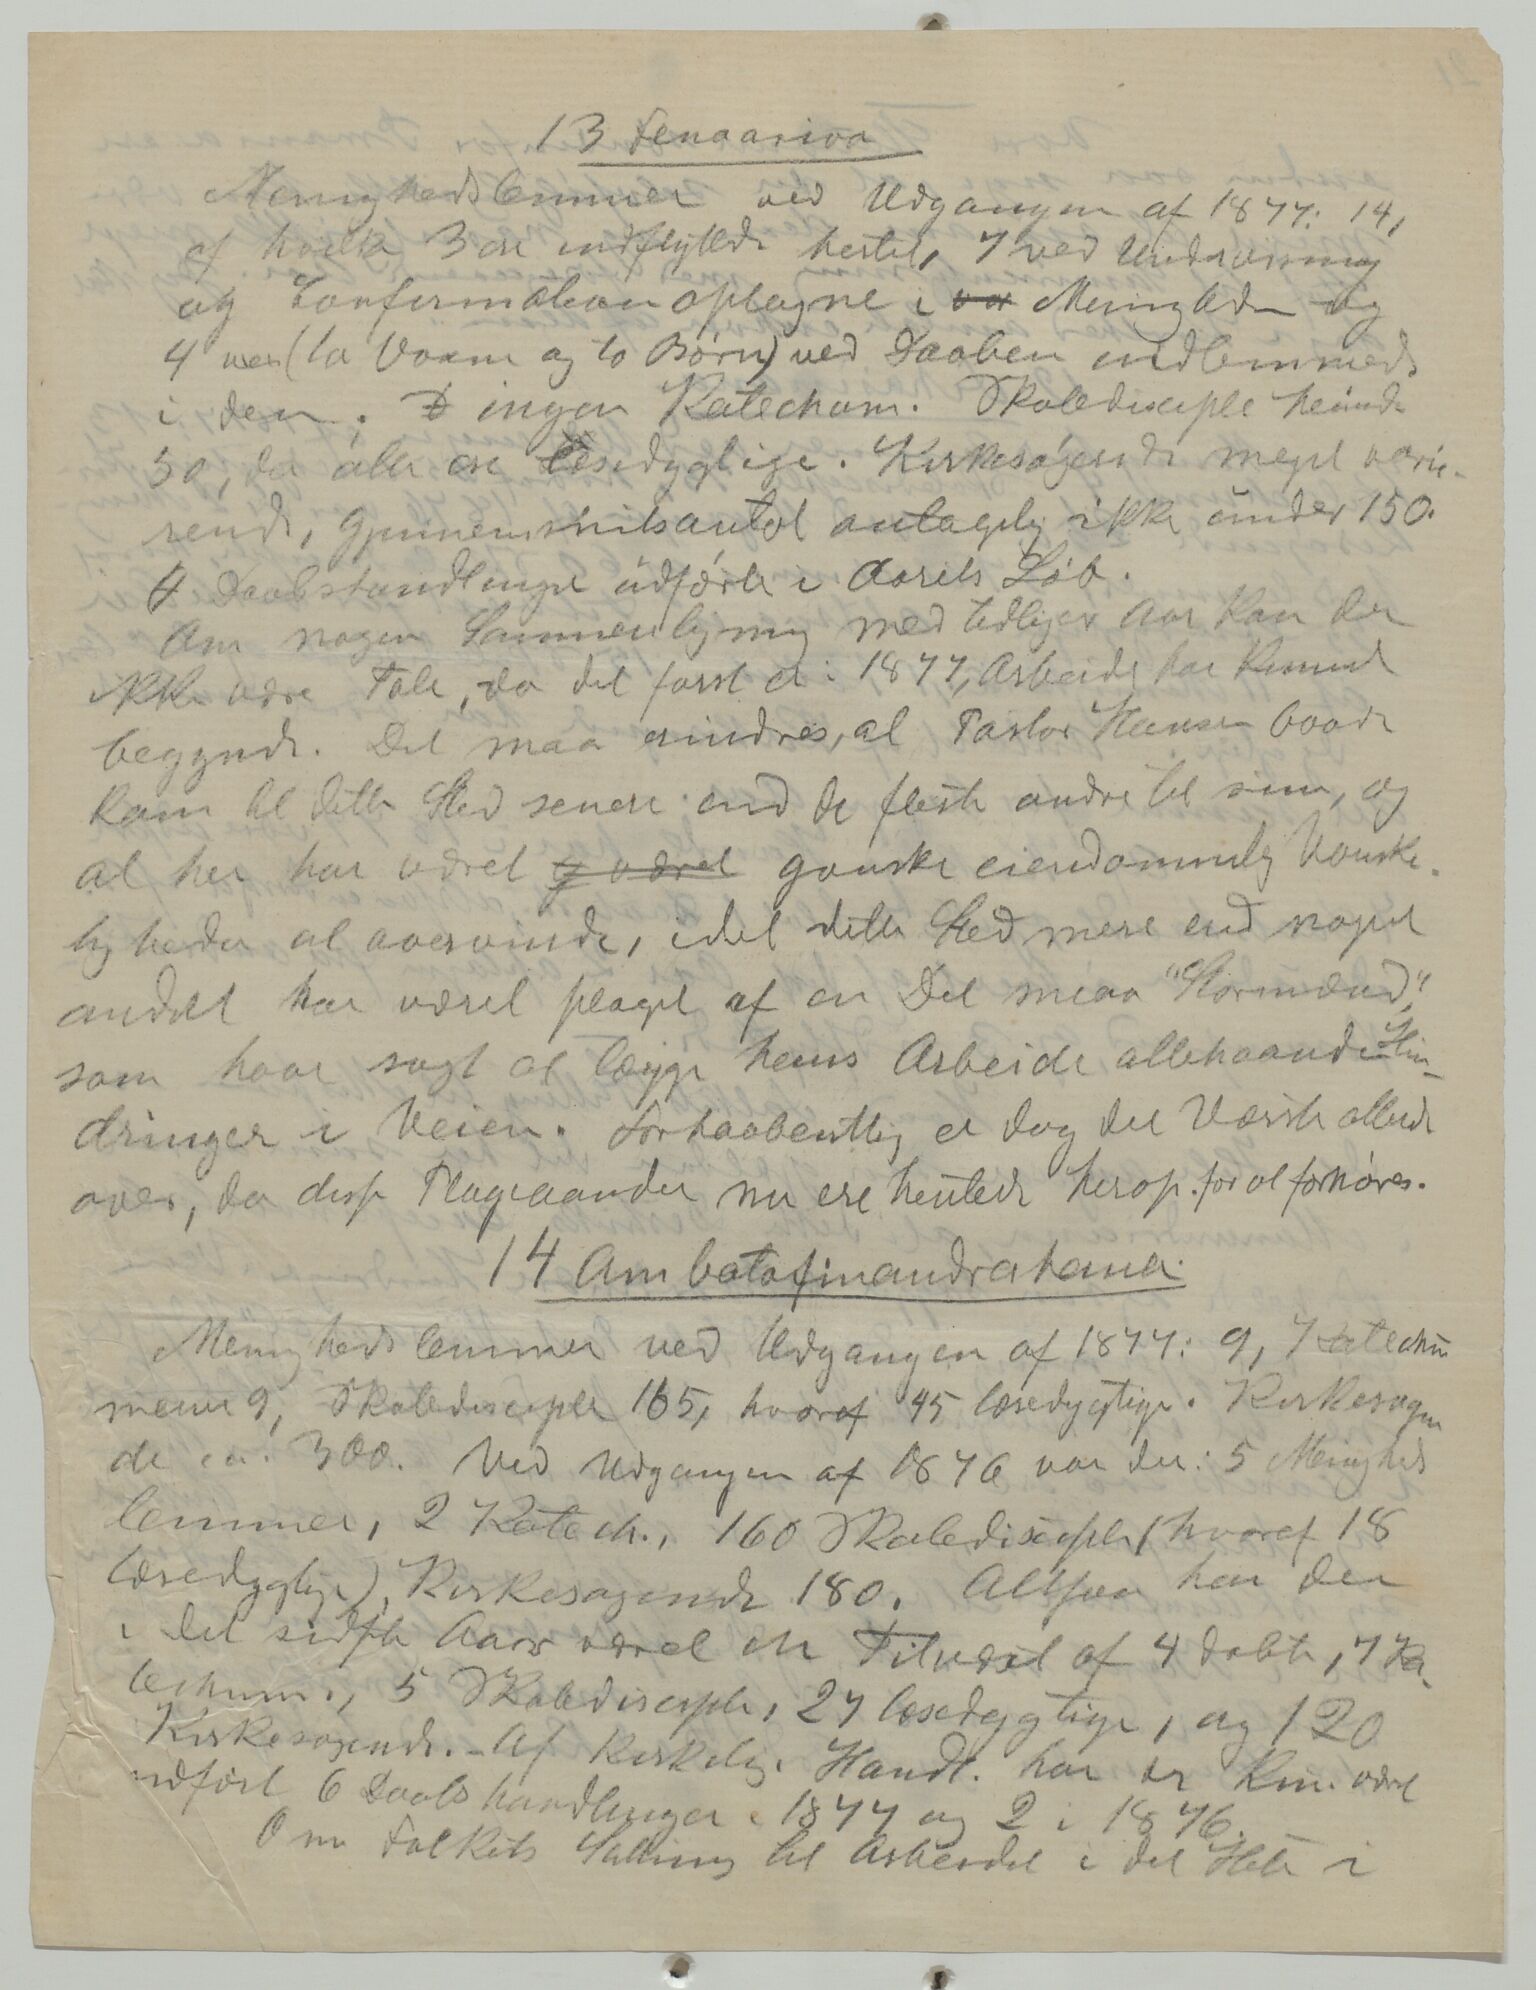 13 Fenoarivo
Menighedslemmer ved Udgangen af 1877: 14,
af hvilke 3 ere indflyttede hertil, 7 ved Undervisning
og Confirmation optagne i vor Menigheden og
4 ved (to Voxne og to Børn) ved Daaben indlemmede
i den. D ingen Katechum. Skoledisciple henimod
30, der alle ere læsedygtige. Kirkesøgende meget varie-
rende, Gjennemsnitsantal antagelig ikke under 150.
4 Daabshandlinger udførte i Aarets Løb.
Om nogen Sammenligning med tidligere Aar kan der
ikke være Tale, da det først er i 1877, Arbeidet har kunnet
begynde. Det maa erindres, at Pastor Hansen baade
kom til dette Sted senere end de fleste andre til sine, og
at her har været og været ganske eiendommelig Vanske-
ligheder at overvinde, idet dette Sted mere end noget
andet har været plaget af en Del smaa "Stormænd",
som have søgt at lægge hans Arbeide allehaande Hin-
dringer i Veien. Forhaabentlig er dog det Værste allerede
over, da disse Plageaander nu ere hentede herop for at forhøres.
14 Ambatofinandrahana.
Menighedslemmer ved Udgangen af 1877: 9, Katechu
mener 9, Skoledisciple 165, hvoraf 45 læsedygtige. Kirkesøgen
de ca. 300. Ved Udgangen af 1876 var der: 5 Menigheds
lemmer, 2 Katech., 160 Skoledisciple (hvoraf 18
læsedygtige), Kirkesøgende 180. Altsaa har der
i det sidste Aar været en Tilvæxt af 4 døbte, 7 Ka
techum., 5 Skoledisciple, 27 læsedygtige, og 120
Kirkesøgende. - Af kirkelig. Handl. har der kun været
udført 6 Daabshandlinger i 1877 og 2 i 1876.
Om Folkets Stilling til Arbeidet i det Hele i